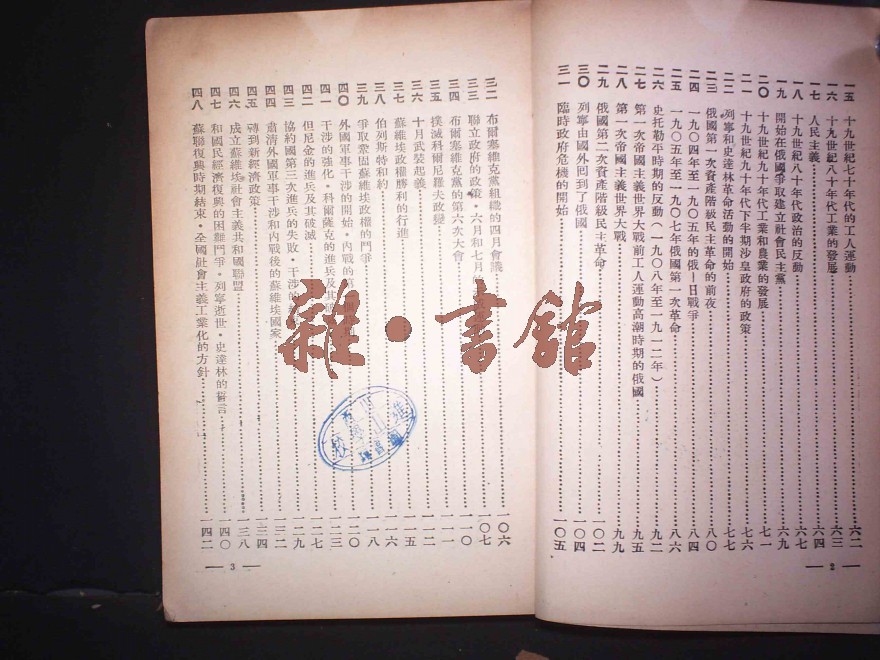 一五 十九世紀七十年代的工人運動 六二
一六 十九世紀八十年代工業的發展 六三
一七 人民主義 六四
一八 十九世紀八十年代政治的反動 六七
一九 開始在俄國爭取建立社會民主黨 六九
二〇 十九世紀九十年代工業和農業的發展 七一
二一 十九世紀九十年代下半期沙皇政府的政策 七六
二二 列寧和史達林革命活動的開始 七七
二三 俄國第一次資產階級民主革命的前夜 八〇
二四 一九〇四年至一九〇五年的俄—日戰爭 八四
二五 一九〇五年至一九〇七年俄國第一次革命 八六
二六 史托勒平時期的反動（一九〇八年至一九一二年） 九二
二七 第一次帝國主義世界大戰前工人運動高潮時期的俄國 九五
二八 第一次帝國主義世界大戰 九九
二九 俄國第二次資產階級民主革命 一〇二
三〇 列寧由國外回到了俄國 一〇四
三一 臨時政府危機的開始 一〇五
2
三二 布爾塞維克黨組織的四月會議 一〇六
三三 聯立政府的政策・六月和七月的 一〇七
三四 布爾塞維克黨的第六次大會 一一〇
三五 撲滅科爾尼羅夫政變 一一一
三六 十月武裝起義 一一二
三七 蘇維埃政權勝利的行進 一一五
三八 伯列斯特和約 一一六
三九 爭取鞏固蘇維埃政權的鬥爭 一一八
四〇 外國軍事干涉的開始・內戰的第 一二〇
四一 干涉的強化・科爾薩克的進兵及其 一二三
四二 但尼金的進兵及其破滅 一二七
四三 協約國第三次進兵的失敗・干涉的 一二九
四四 肅清外國軍事干涉和內戰後的蘇維埃國家 一三二
四五 轉到新經濟政策 一三四
四六 成立蘇維埃社會主義共和國聯盟 一三八
四七 和國民經濟復興的困難鬥爭・列寧逝世・史達林的誓言 一四〇
四八 蘇聯復興時期結束・全國社會主義工業化的方針 一四二
3
雜・書館